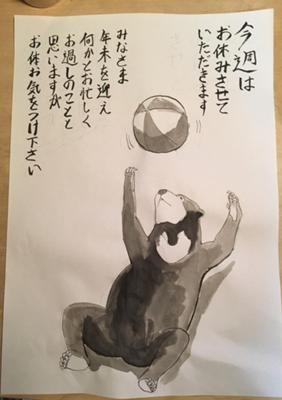 今週は
お休みさせて
いただきます
みなさま
年末を迎え
何かとお忙しく
お過しのことと
思いますが
お体お気をつけ下さい